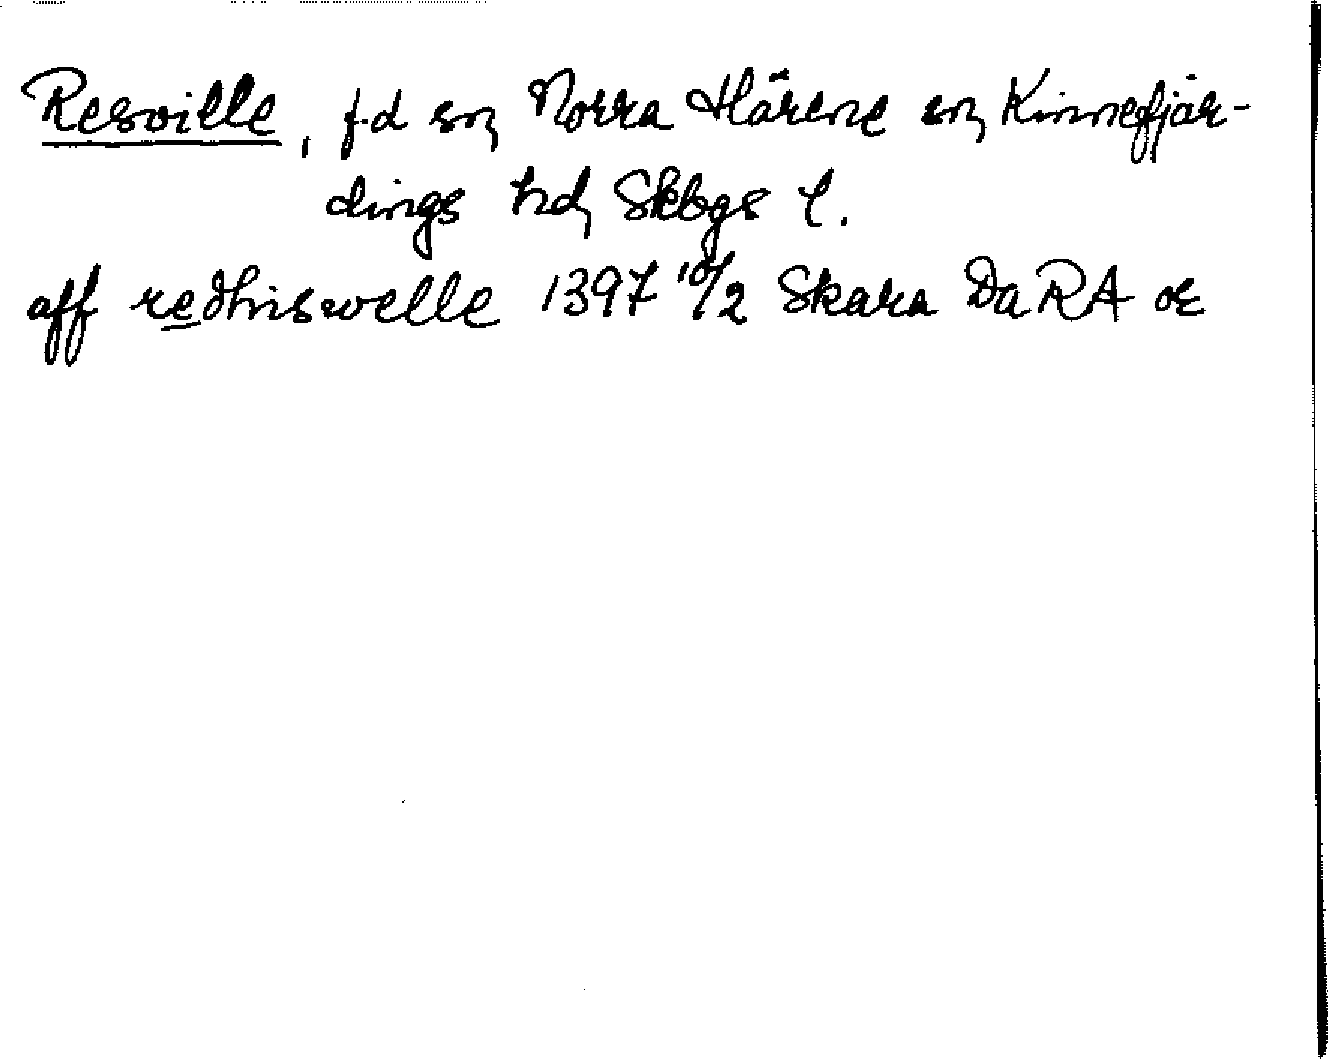 Resville, f.d sn, Norra Härene sn, Kinnefjär-
dings hd, Skbgs l.
aff redhiswelle 1397 10/2 Skara DaRA or